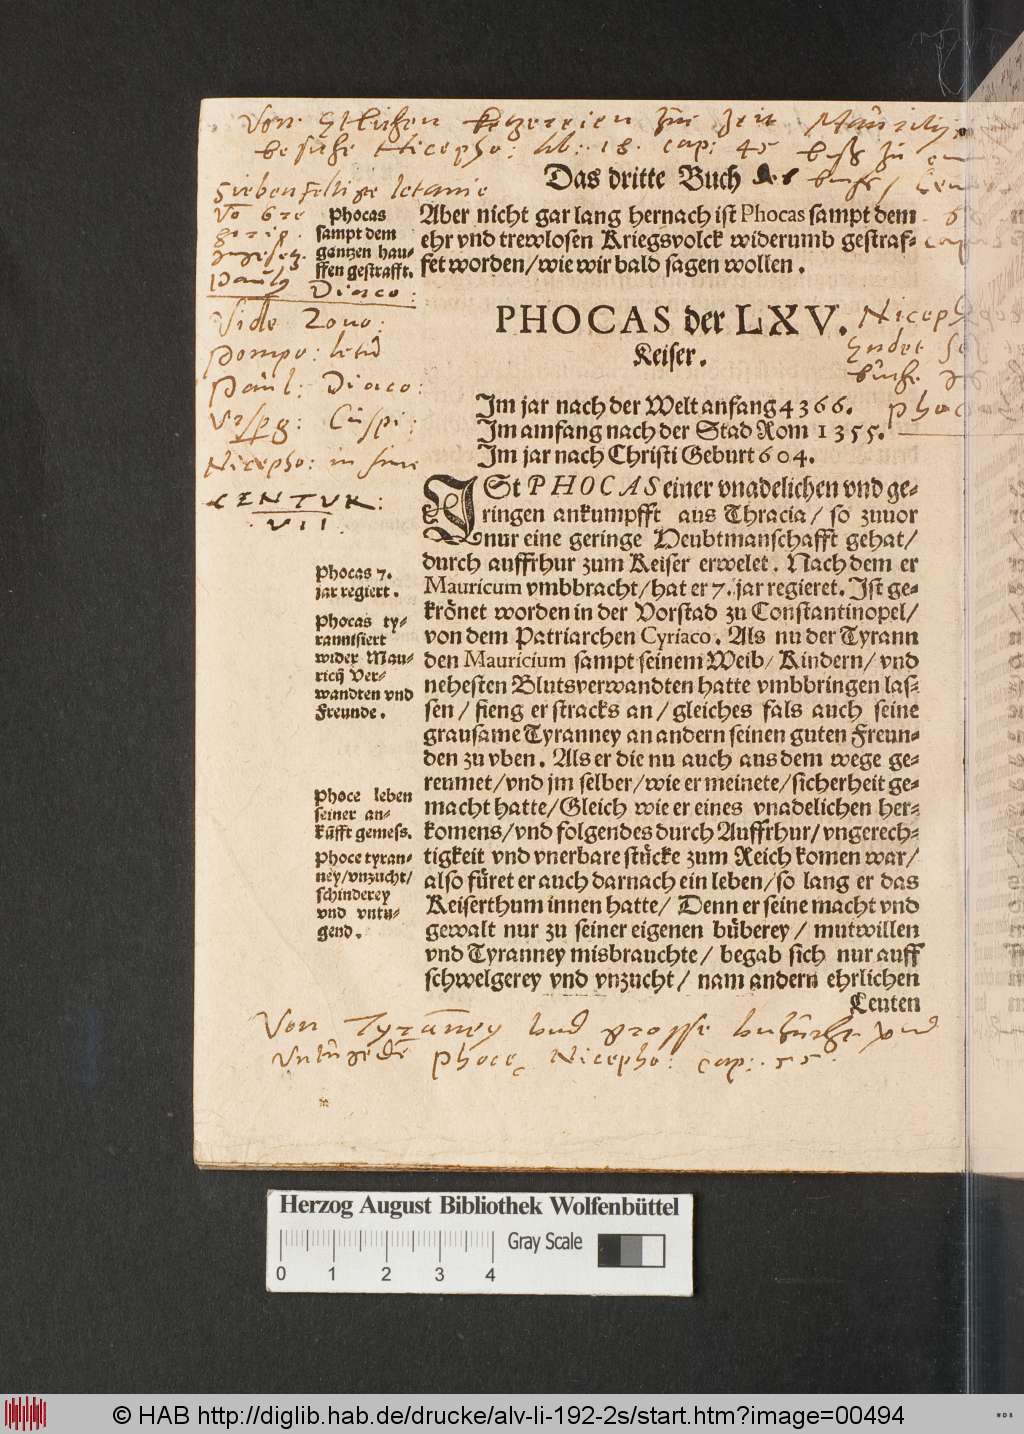 Von etlichen Ketzereien zur zeit Mauritij
besiehe Nicepho: lib: 18. cap: 45 biß zu
Siebenfeltige letanie
Das dritte Buch
Phocas
sampt dem
gantzen hau-
ffen gestrafft.
Aber nicht gar lang hernach ist Phocas sampt dem
ehr vnd trewlosen Kriegsvolck widerumb gestraf-
fet worden/wie wir bald sagen wollen.
Pauly Diaco:
Vide Zono:
Pompo: letu
Paul: Diaco:
Vrsperg: Cuspi:
Nicepho: in fine
CENTUR:
VII
PHOCAS der LXV.
Keiser.
Niceph
Endet
buche
Phoc
Im jar nach der Welt anfang 4366.
Im amfang nach der Stad Rom 1355.
Im jar nach Christi Geburt 604.
ISt PHOCAS einer vnadelichen vnd ge-
ringen ankumpfft aus Thracia/ so zuuor
nur eine geringe Heubtmanschafft gehat/
durch auffrhur zum Keiser erwelet. Nach dem er
Mauricum vmbbracht/hat er 7. jar regieret. Ist ge-
krönet worden in der Vorstad zu Constantinopel/
von dem Patriarchen Cyriaco. Als nu der Tyrann
den Mauricium sampt seinem Weib/ Kindern/ vnd
nehesten Blutsverwandten hatte vmbbringen las-
sen/ fieng er stracks an/ gleiches fals auch seine
grausame Tyranney an andern seinen guten Freun-
den zu vben. Als er die nu auch aus dem wege ge-
reumet/vnd jm selber/wie er meinete/sicherheit ge-
macht hatte/Gleich wie er eines vnadelichen her-
komens/vnd folgendes durch Auffrhur/vngerech-
tigkeit vnd vnerbare stücke zum Reich komen war/
also füret er auch darnach ein leben/so lang er das
Keiserthum innen hatte/ Denn er seine macht vnd
gewalt nur zu seiner eigenen büberey/ mutwillen
vnd Tyranney misbrauchte/ begab sich nur auff
schwelgerey vnd vnzucht/ nam andern ehrlichen
Leuten
Phocas 7.
jar regiert.
Phocas ty-
rannisiert
wider Mau-
ricij Ver-
wandten vnd
Freunde.
Phoce leben
seiner an-
kũfft gemess.
Phoce tyran-
ney/vnzucht/
schinderey
vnd vntu-
gend.
Von Tyraney vnd grosse vnzucht vnd
vntugede Phoce Nicepho: cap: 55
Herzog August Bibliothek Wolfenbüttel
Gray Scale
0 1 2 3 4
© HAB http://diglib.hab.de/drucke/alv-li-192-2s/start.htm?image=00494